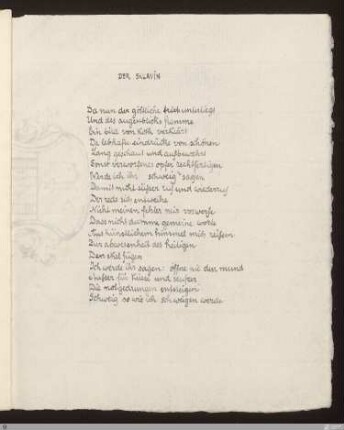 DER SKLAVIN
Da nun der göttliche trieb unterliegt
Und des augenblicks flamme
Ein bild von koth verklärt
Da lebhafte eindrücke von schönen
Lang geschaut und aufbewahrt
Einst verworfenes opfer rechtfertigen
Werde ich ihr schweig sagen
Damit nicht süßer ruf und
Der rede sich entweihe
Nicht meinen fehler mir vorwerfe
Dass nicht das arme gemeine worte
Aus künstlichem himmel mich reißen
Zur abwesenheit des heiligen
Den ekel fügen
Ich werde ihr sagen: öffne nie den mund
Außer für küsse und seufzer
Die notgedrungen entsteigen
Schweig so wie ich schweigen werde